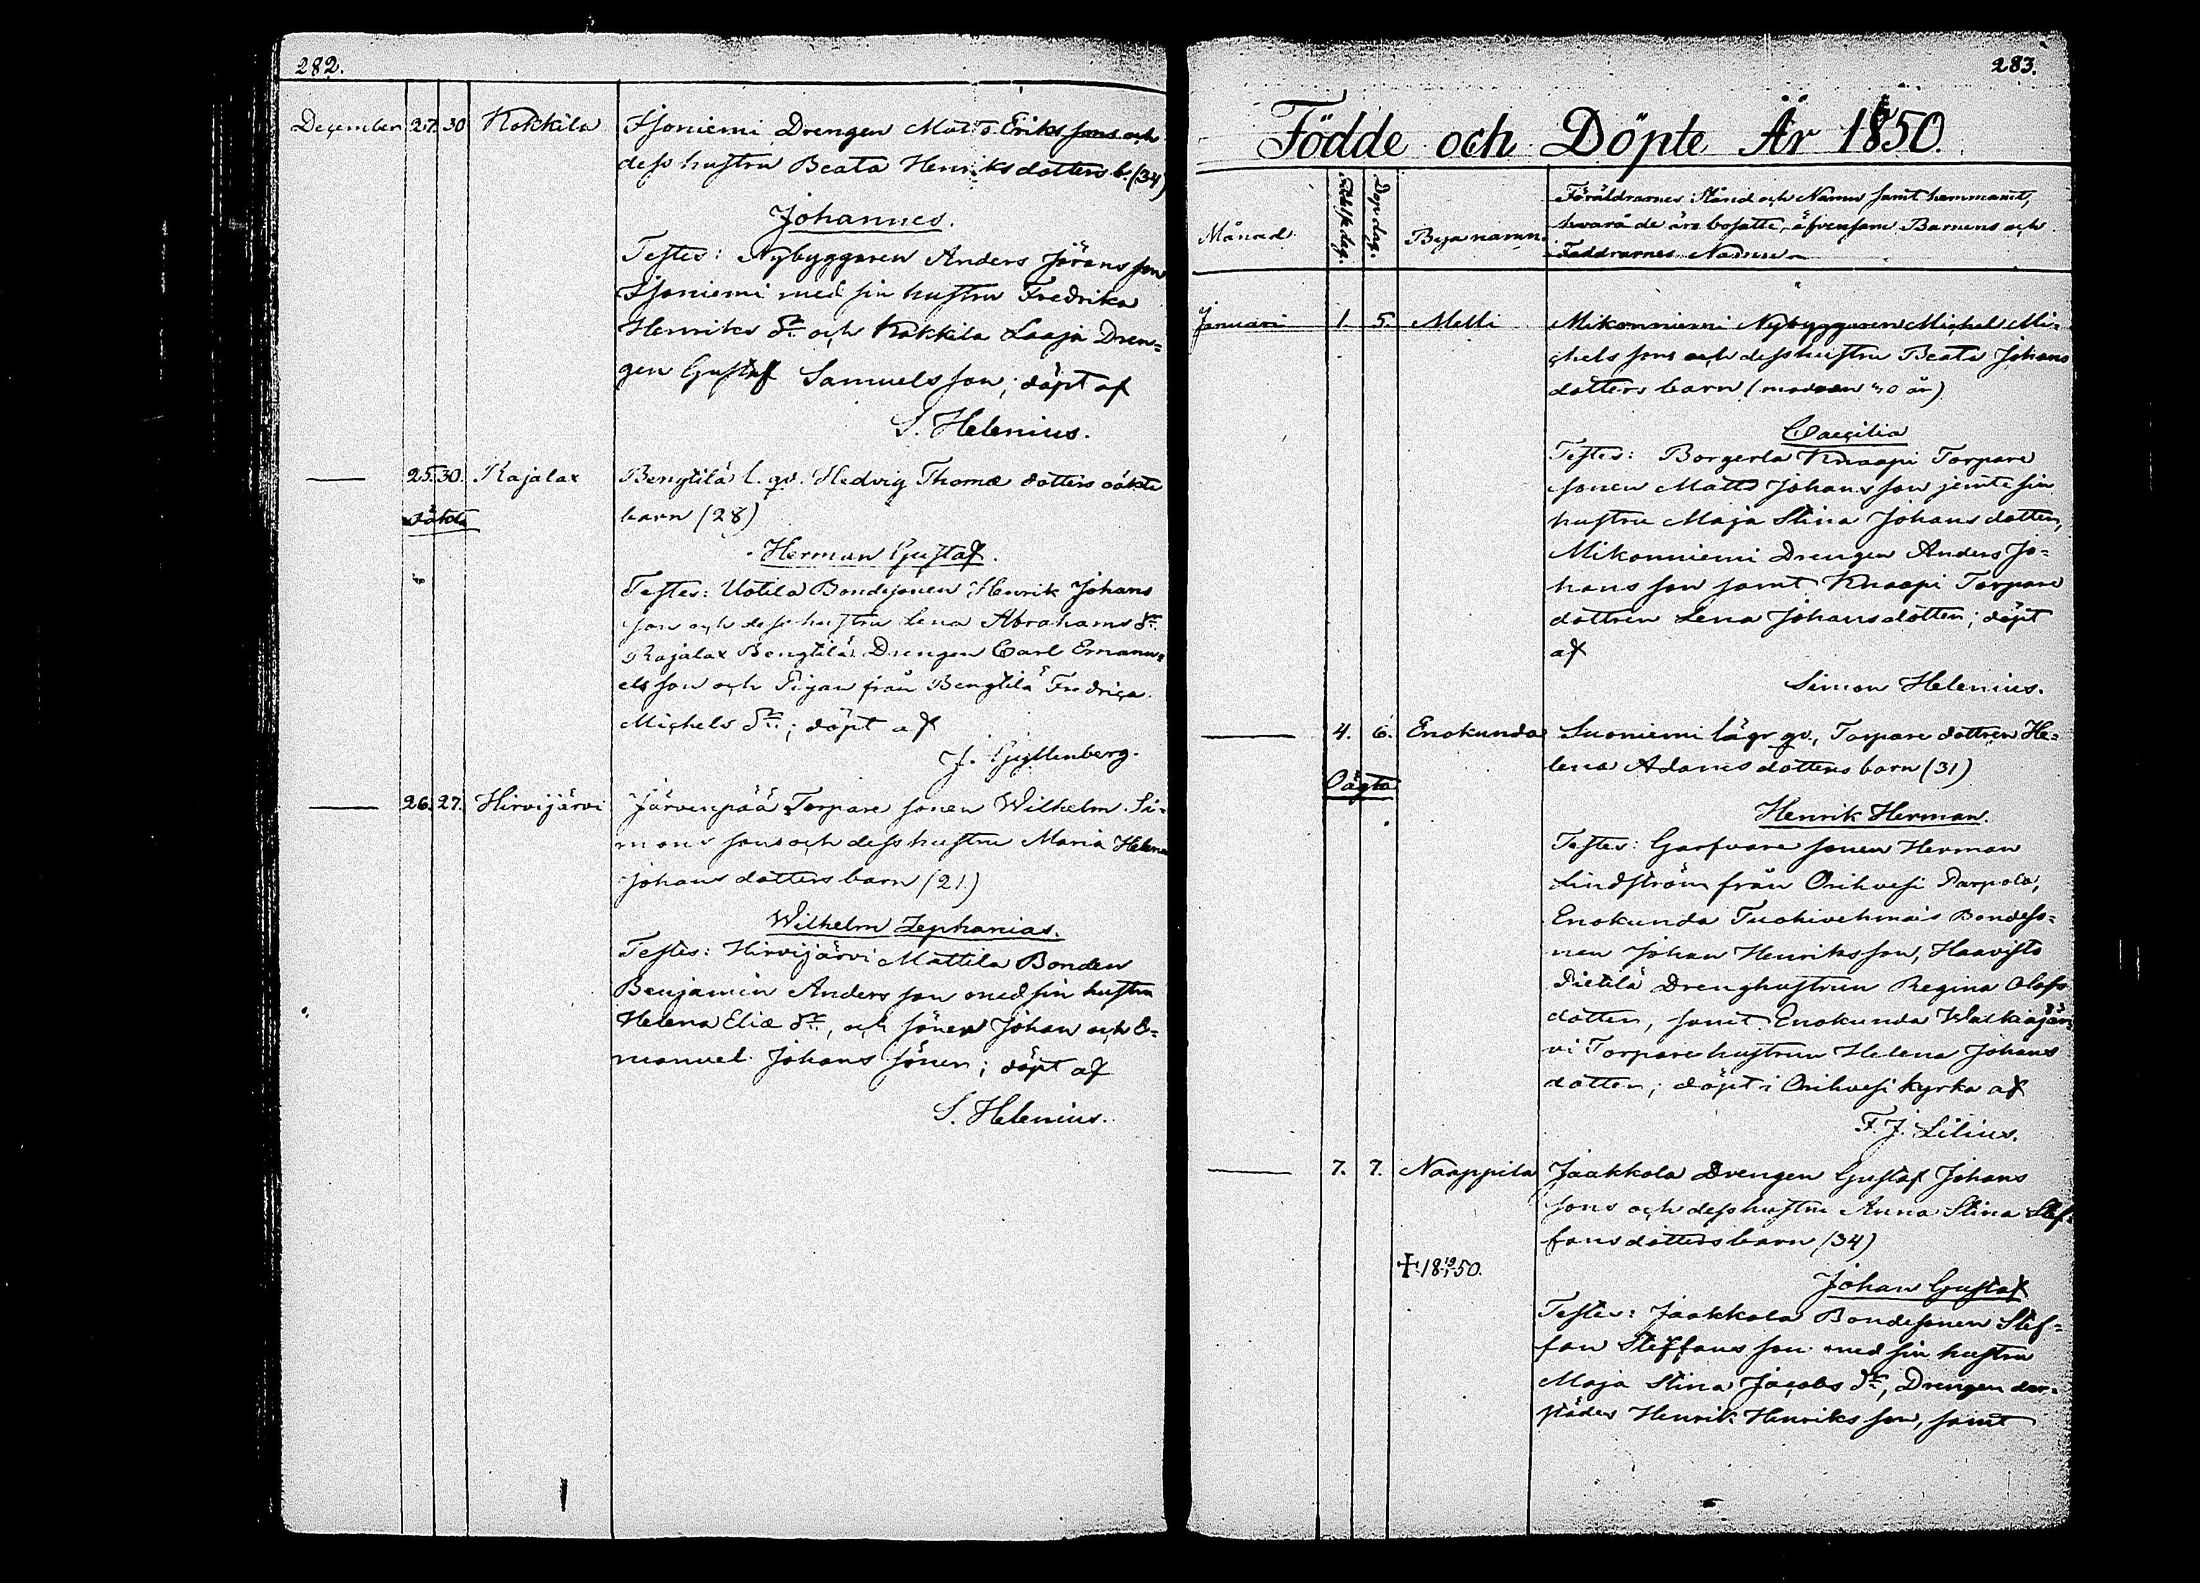 282.
December 27. 30 Kokkila Isoniemi Drengen Matts Eriks sons och
dess hustru Beata Henriks dotters b. (34)
Johannes.
Testes: Nybyggaren Anders Jörans son
Isoniemi med sin hustru Fredrika
Henriks dr. och Kokkila Laaja Dren=
gen Gustaf Samuels son; döpt af
S. Helenius.
— 25. 30. Kajalax Bengtilä l. qv. Hedvig Thomæ dotters oäkta
oäkta barn (28)
Herman Gustaf.
Testes: Uotila Bondesonen Henrik Johans
son och dess hustru Lena Abrahams dr.
Kajalax Bengtilä Drengen Carl Emanu=
els son och Pigan från Bengtilä Fredrica
Michels dr.; döpt af
J. Gyllenberg.
— 26. 27. Hirvijärvi Järvenpää Torpare sonen Wilhelm Si=
mons sons och dess hustru Maria Helena
Johans dotters barn (21.)
Wilhelm Zephanias.
Testes: Hirvijärvi Mattila Bonden
Benjamin Anders son med sin hustru
Helena Eliæ dr., och sönen Johan och E=
manuel Johans söner; döpt af
S. Helenius.
283.
Födde och Döpte År 1850.
Månad. Födelse dag. Dop dag. Byanamn. Föräldrarnes Stånd och Namn samt hemmanet,
hvarå de äro bosatte, äfvensom Barnens och
Faddrarnes Namn
Januari 1. 5. Melli Mikonniemi Nybyggaren Michel Mi=
chels sons och dess hustru Beata Johans
dotters barn (modren 40 år)
Caecilia
Testes: Borgerla Knaapi Torpare
sonen Matts Johans son jemte sin
hustru Maja Stina Johans dotter,
Mikonniemi Drengen Anders Jo=
hans son samt Knaapi Torpare
dottren Lena Johans dotter; döpt
af
Simon Helenius.
— 4. 6. Enokunda Suoniemi lägr qv., Torpare dottren He=
Oägta lena Adams dotters barn (31)
Henrik Herman.
Testes: Garfvare sonen Herman
Lindström från Orihvesi Parpola,
Enokunda Tuohivehmais Bondeso=
nen Johan Henriks son, Haavisto
Pietilä Drenghustrun Regina Olofs
dotter, samt Enokunda Walkiajär
vi Torpare hustrun Helena Johans
dotter; döpt i Orihvesi kyrka af
F. J. Lilius.
— 7. 7. Naappila Jaakkola Drengen Gustaf Johans
sons och dess hustru Anna Stina Stef=
fans dotters barn (34)
Johan Gustaf
Testes: Jaakkola Bondesonen Stef=
fan Steffans son med sin hustru
Maja Stina Jacobs dr., Drengen der=
städes Henrik Henriks son, samt